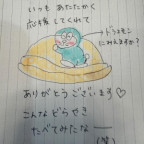 いつも あたたかく
応援 してくれて
ドラえもん
にみえますか?
ありがとうございます♡
こんな どらやき
たべてみたいな
(笑)